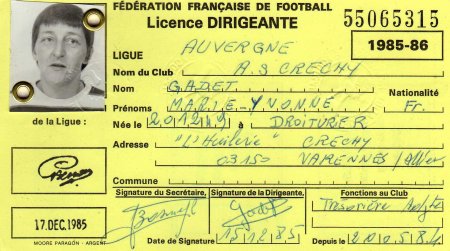 FÉDÉRATION FRANÇAISE DE FOOTBALL
Licence DIRIGEANTE
55065315
1985-86
LIGUE AUVERGNE
Nom du Club A.S CRECHY
Nom GADET
Nationalité
Prénoms MARIE-YVONNE Fr.
de la Ligue :
Née le à DROITURIER
Adresse "L'Huilerie" CRECHY
03150 VARENNES/Allier
Commune
Signature du Secrétaire,
Signature de la Dirigeante,
Fonctions au Club
Trésorière
17.DEC.1985
Date de Signature 15.12.85
Depuis le 20.05.84
MOORE PARAGON - ARGENT